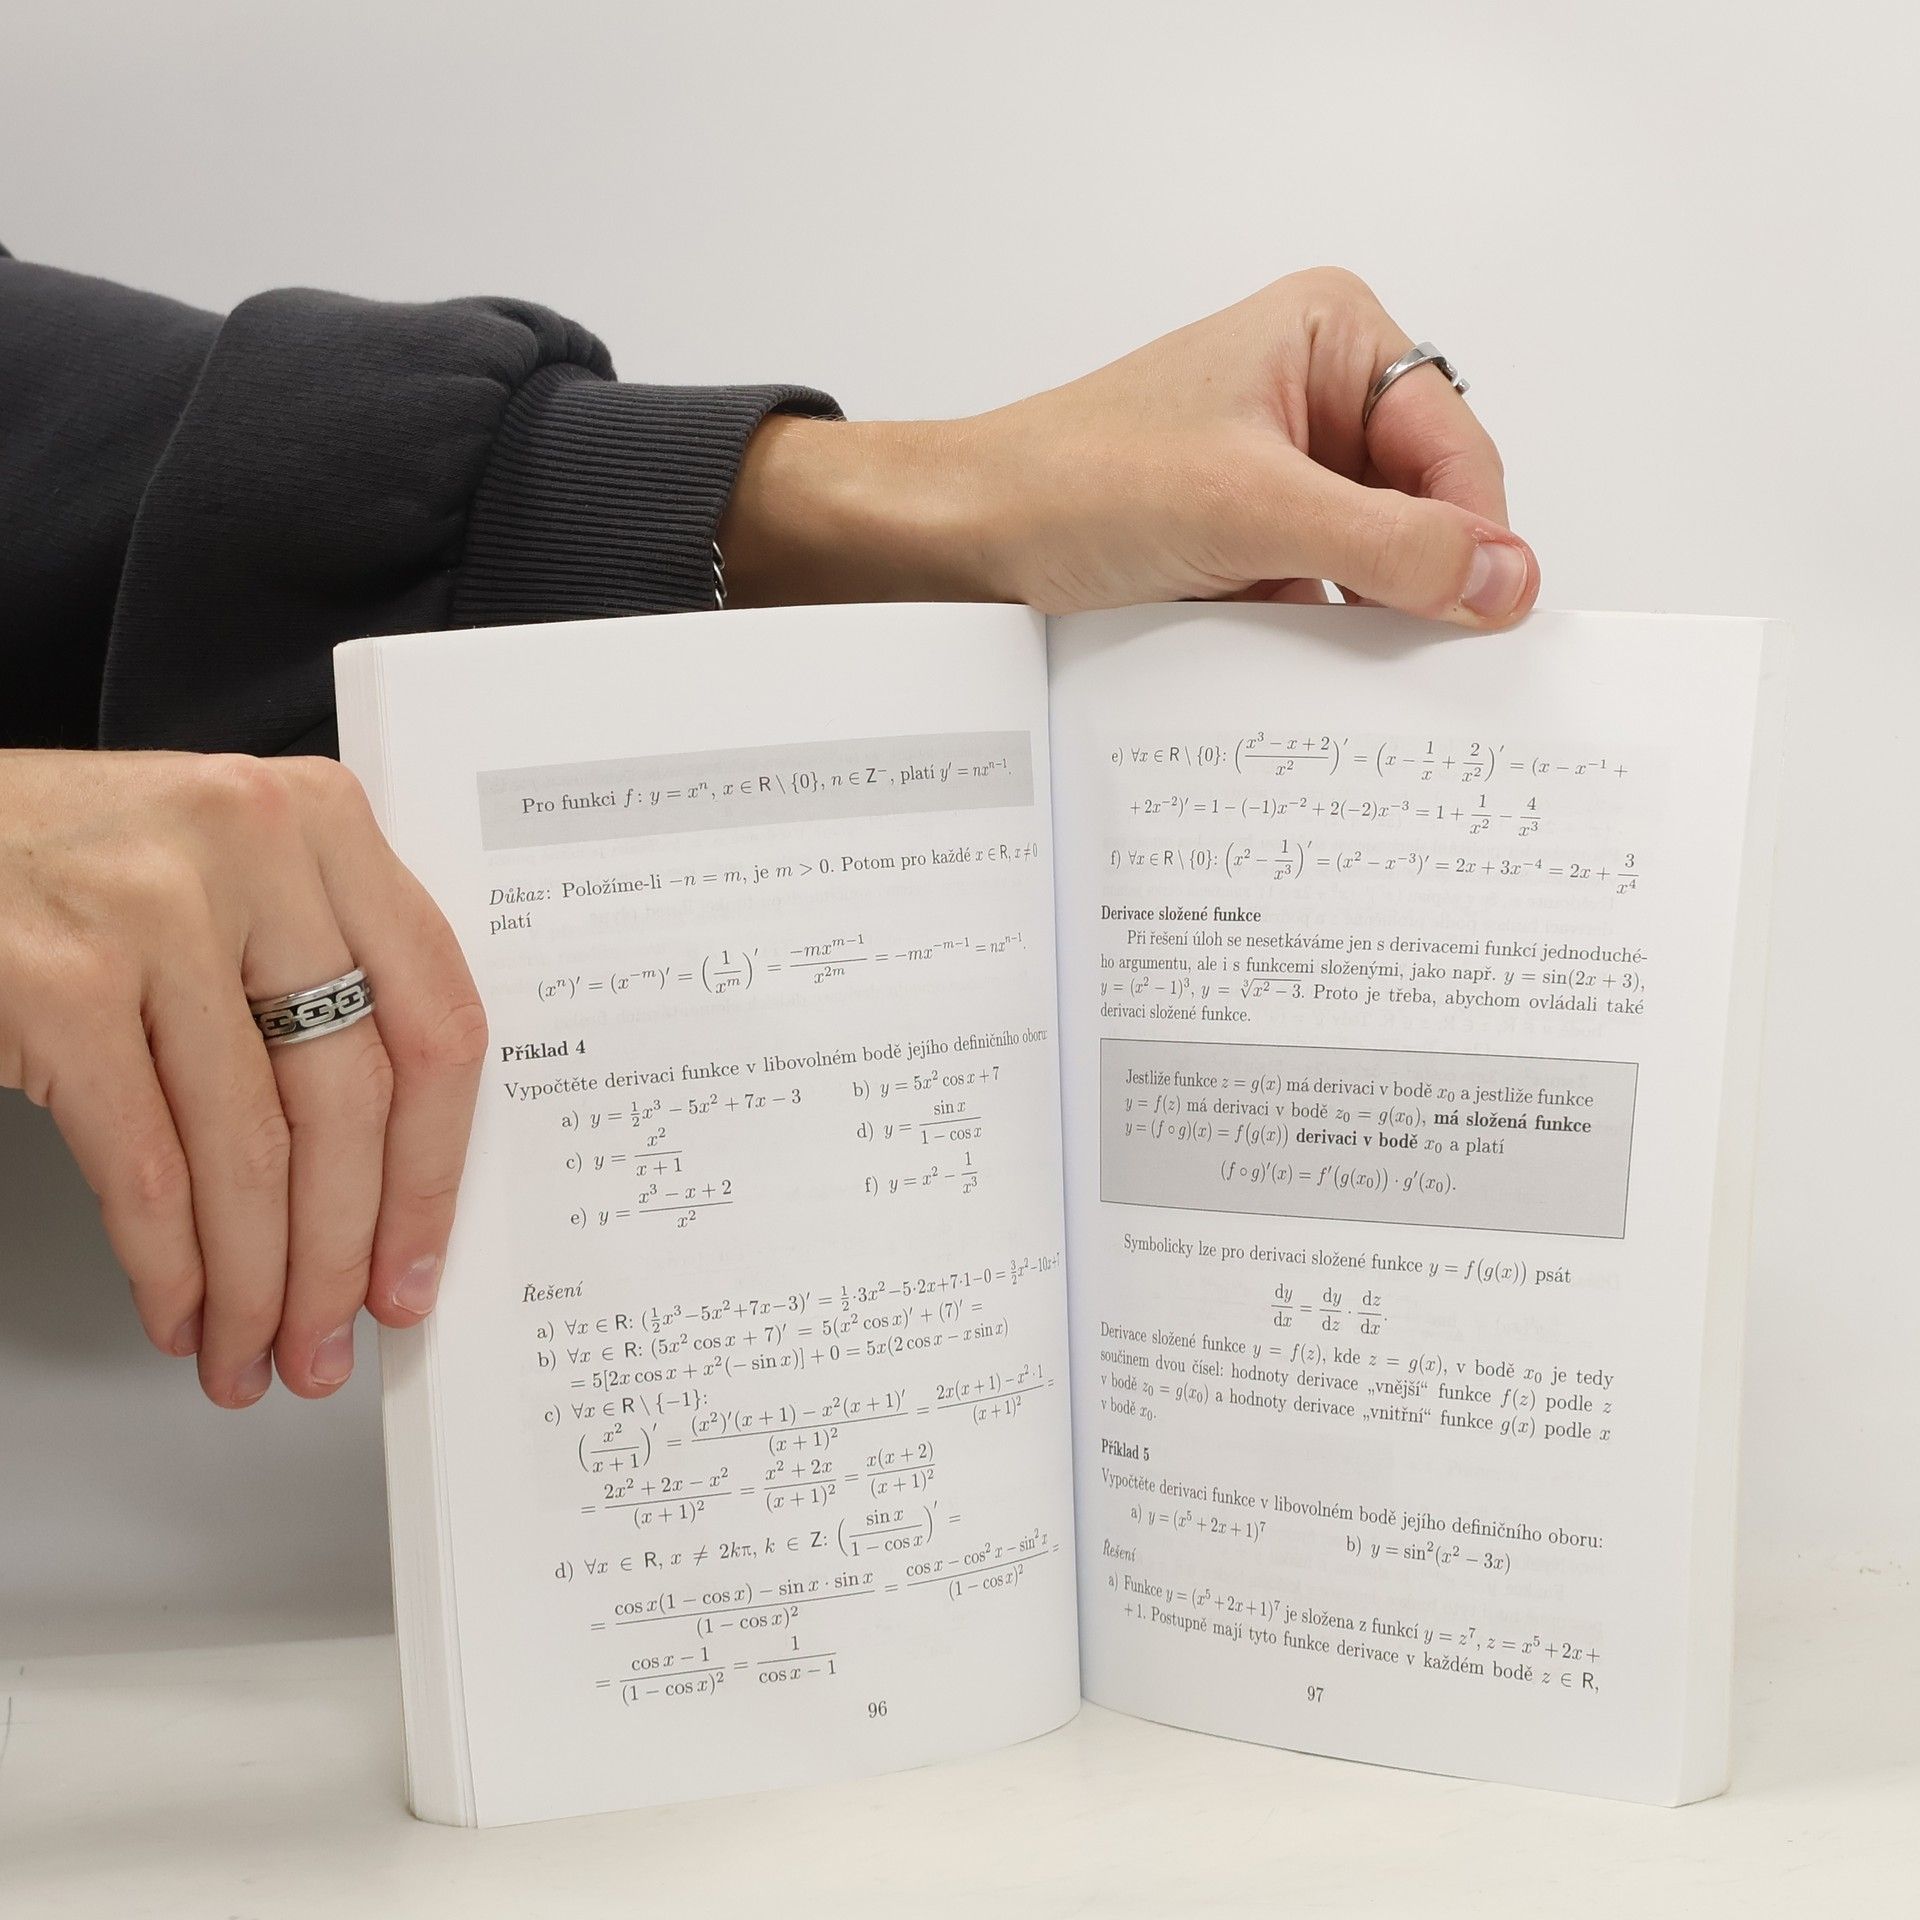 Pro funkci f: y = xⁿ, x ∈ R \ {0}, n ∈ Z⁻, platí y′ = nxⁿ⁻¹.
Důkaz: Položíme-li −n = m, je m > 0. Potom pro každé x ∈ R, x ≠ 0
platí
(xⁿ)′ = (x⁻ᵐ)′ = (1/xᵐ)′ = −mxᵐ⁻¹/x²ᵐ = −mx⁻ᵐ⁻¹ = nxⁿ⁻¹.
Příklad 4
Vypočtěte derivaci funkce v libovolném bodě jejího definičního oboru:
a) y = ½x³ − 5x² + 7x − 3 b) y = 5x² cos x + 7
c) y = x²/(x + 1) d) y = sin x/(1 − cos x)
e) y = (x³ − x + 2)/x² f) y = x² − 1/x³
Řešení
a) ∀x ∈ R: (½x³ − 5x² + 7x − 3)′ = ½·3x² − 5·2x + 7·1 − 0 = 3/2x² − 10x + 7
b) ∀x ∈ R: (5x² cos x + 7)′ = 5(x² cos x)′ + (7)′ =
= 5[2x cos x + x²(− sin x)] + 0 = 5x(2 cos x − x sin x)
c) ∀x ∈ R \ {−1}:
(x²/(x + 1))′ = ((x²)′(x + 1) − x²(x + 1)′)/(x + 1)² = (2x(x + 1) − x²·1)/(x + 1)² =
= (2x² + 2x − x²)/(x + 1)² = (x² + 2x)/(x + 1)² = x(x + 2)/(x + 1)²
d) ∀x ∈ R, x ≠ 2kπ, k ∈ Z: (sin x/(1 − cos x))′ =
= (cos x(1 − cos x) − sin x · sin x)/(1 − cos x)² = (cos x − cos² x − sin² x)/(1 − cos x)² =
= (cos x − 1)/(1 − cos x)² = 1/(cos x − 1)
96
e) ∀x ∈ R \ {0}: ((x³ − x + 2)/x²)′ = (x − 1/x + 2/x²)′ = (x − x⁻¹ +
+ 2x⁻²)′ = 1 − (−1)x⁻² + 2(−2)x⁻³ = 1 + 1/x² − 4/x³
f) ∀x ∈ R \ {0}: (x² − 1/x³)′ = (x² − x⁻³)′ = 2x + 3x⁻⁴ = 2x + 3/x⁴
Derivace složené funkce
Při řešení úloh se nesetkáváme jen s derivacemi funkcí jednoduché-
ho argumentu, ale i s funkcemi složenými, jako např. y = sin(2x + 3),
y = (x² − 1)³, y = ∛(x² − 3). Proto je třeba, abychom ovládali také
derivaci složené funkce.
Jestliže funkce z = g(x) má derivaci v bodě x₀ a jestliže funkce
y = f(z) má derivaci v bodě z₀ = g(x₀), má složená funkce
y = (f ∘ g)(x) = f(g(x)) derivaci v bodě x₀ a platí
(f ∘ g)′(x) = f′(g(x₀)) · g′(x₀).
Symbolicky lze pro derivaci složené funkce y = f(g(x)) psát
dy/dx = dy/dz · dz/dx.
Derivace složené funkce y = f(z), kde z = g(x), v bodě x₀ je tedy
součinem dvou čísel: hodnoty derivace „vnější“ funkce f(z) podle z
v bodě z₀ = g(x₀) a hodnoty derivace „vnitřní“ funkce g(x) podle x
v bodě x₀.
Příklad 5
Vypočtěte derivaci funkce v libovolném bodě jejího definičního oboru:
a) y = (x⁵ + 2x + 1)⁷ b) y = sin²(x² − 3x)
Řešení
a) Funkce y = (x⁵ + 2x + 1)⁷ je složena z funkcí y = z⁷, z = x⁵ + 2x +
+ 1. Postupně mají tyto funkce derivace v každém bodě z ∈ R,
97